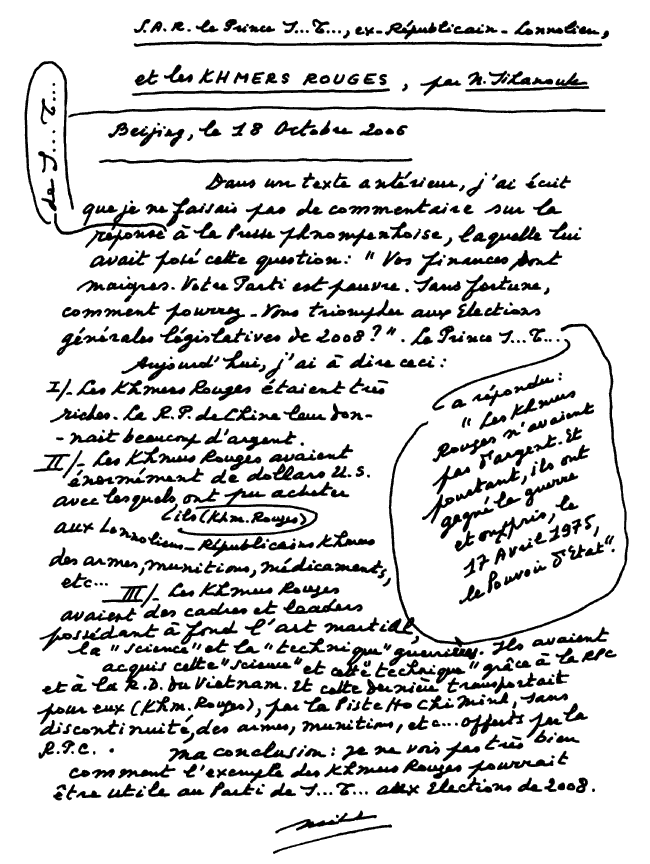 S.A.R. le Prince S...T..., ex-Républicain-Lonnolien,
et les KHMERS ROUGES, par N. Sihanouk
de S... T...
Beijing, le 18 Octobre 2006
Dans un texte antérieur, j'ai écrit
que je ne faisais pas de commentaire sur la
réponse à la Presse phnompenhoise, laquelle lui
avait posé cette question: "Vos finances sont
maigres. Votre Parti est pauvre. Sans fortune,
comment pourrez-vous triompher aux Elections
générales législatives de 2008?". Le Prince S...T...
a répondu:
"Les Khmers
Rouges n'avaient
pas d'argent. Et
pourtant, ils ont
gagné la guerre
et ont pris, le
17 Avril 1975,
le Pouvoir d'Etat".
Aujourd'hui, j'ai à dire ceci:
I/- Les Khmers Rouges étaient très
riches. La R.P. de Chine leur don-
-nait beaucoup d'argent.
II/- Les Khmers Rouges avaient
énormément de dollars U.S.
avec lesquels ont pu acheter
ils (Khm. Rouges)
aux Lonnoliens-Républicains Khmers
des armes, munitions, médicaments,
etc... III/- Les Khmers Rouges
avaient des cadres et leaders
possédant à fond l'art martial,
la "science" et la "technique" guerrières. Ils avaient
acquis cette "science" et cette "technique" grâce à la RPC
et à la R.D. du Vietnam. Et cette dernière transportait
pour eux (Khm. Rouges), par la Piste Ho Chi Minh, sans
discontinuité, des armes, munitions, etc... offerts par la
R.P.C. . Ma conclusion: je ne vois pas très bien
comment l'exemple des Khmers Rouges pourrait
être utile au Parti de S...T... aux Elections de 2008.